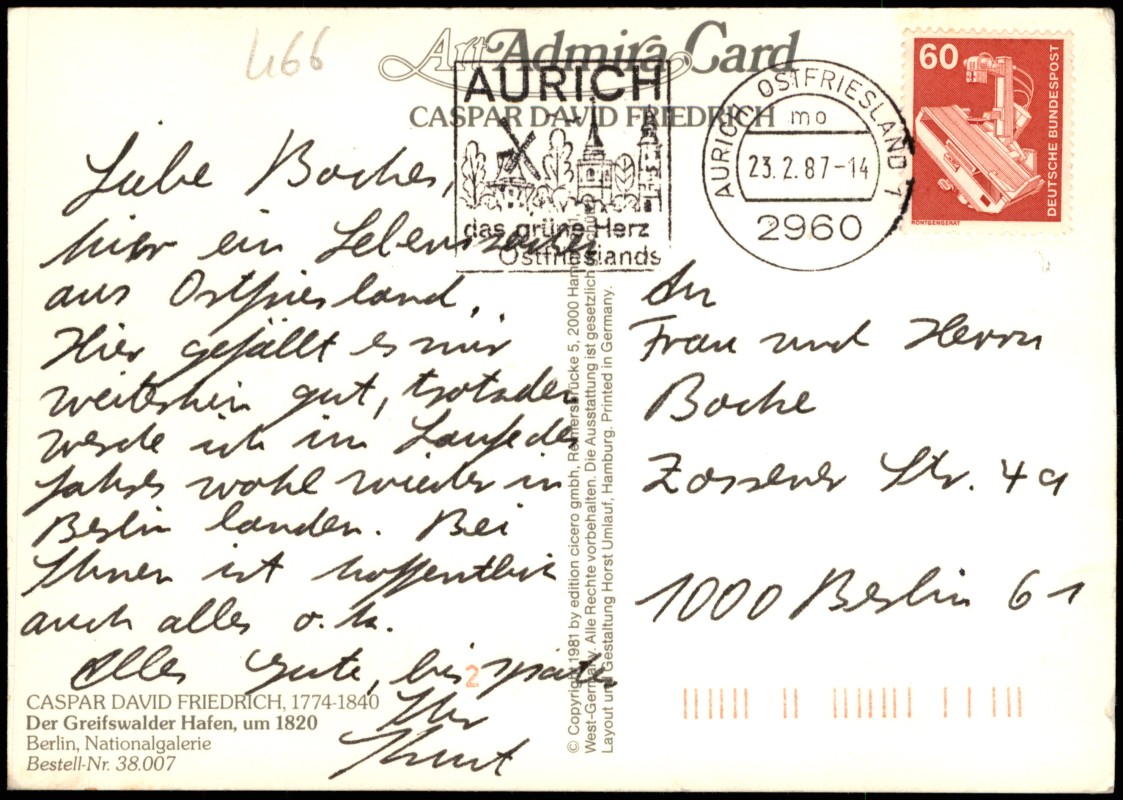 466
Art Admira Card
CASPAR DAVID FRIEDRICH
AURICH
das grüne Herz
Ostfrieslands
AURICH, OSTFRIESLAND 1
mo
23.2.87-14
2960
60
DEUTSCHE BUNDESPOST
RÖNTGENGERÄT
Liebe Boches,
hier ein Lebenszeichen
aus Ostfriesland,
Hier gefällt es mir
weiterhin gut, trotzdem
werde ich im Laufe des
Jahres wohl wieder in
Berlin landen. Bei
Ihnen ist hoffentlich
auch alles o.k.
Alles Gute, bis später
Ihr
An
Frau und Herrn
Boche
Zossener Str. 49
1000 Berlin 61
2
CASPAR DAVID FRIEDRICH, 1774-1840
Der Greifswalder Hafen, um 1820
Berlin, Nationalgalerie
Bestell-Nr. 38.007
© Copyright 1981 by edition cicero gmbh, Reimersbrücke 5, 2000 Ham
West-Germany. Alle Rechte vorbehalten. Die Ausstattung ist gesetzlich
Layout und Gestaltung Horst Umlauf, Hamburg. Printed in Germany.